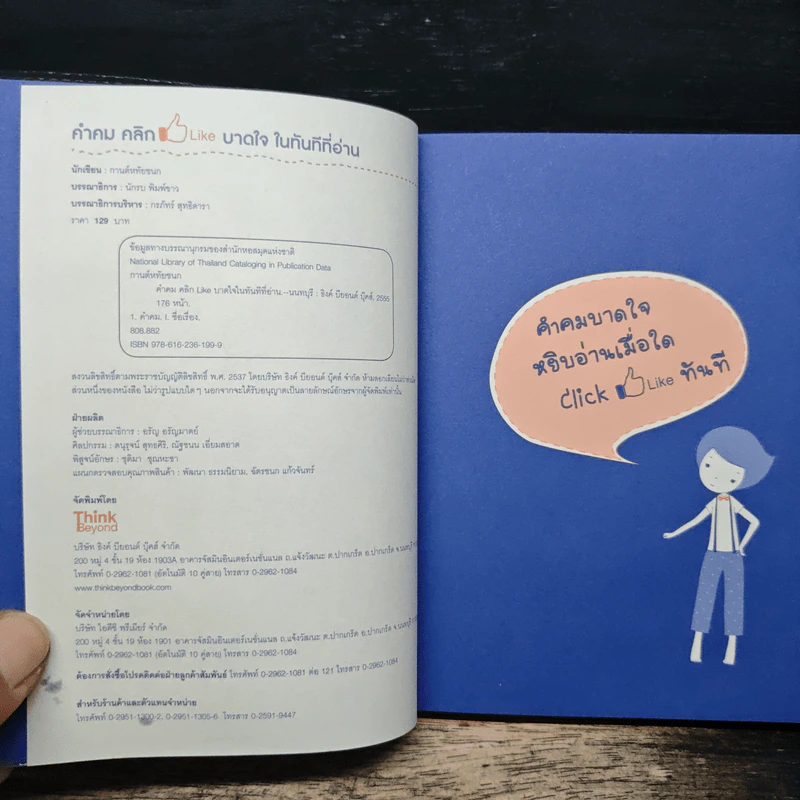 คำคม คลิก Like บาดใจ ในทันทีที่อ่าน
นักเขียน : กานต์หทัยชนก
บรรณาธิการ : นักรบ พิมพ์ขาว
บรรณาธิการบริหาร : กรภัทร์ สุทธิดารา
ราคา 129 บาท
ข้อมูลทางบรรณานุกรมของสำนักหอสมุดแห่งชาติ
National Library of Thailand Cataloging in Publication Data
กานต์หทัยชนก
คำคม คลิก Like บาดใจในทันทีที่อ่าน.--นนทบุรี : ธิงค์ บียอนด์ บุ๊คส์, 2555
176 หน้า.
1. คำคม. I. ชื่อเรื่อง.
808.882
ISBN 978-616-236-199-9
สงวนลิขสิทธิ์ตามพระราชบัญญัติลิขสิทธิ์ พ.ศ. 2537 โดยบริษัท ธิงค์ บียอนด์ บุ๊คส์ จำกัด ห้ามลอกเลียนไม่ว่า
ส่วนหนึ่งของหนังสือ ไม่ว่ารูปแบบใดๆ นอกจากจะได้รับอนุญาตเป็นลายลักษณ์อักษรจากผู้จัดพิมพ์เท่านั้น
ฝ่ายผลิต
ผู้ช่วยบรรณาธิการ : อรัญ อรัญมาตย์
ศิลปกรรม : ดนุรุจน์ สุทธศิริ, ณัฐชนน เอี่ยมสอาด
พิสูจน์อักษร : ชุติมา ชุณหะชา
แผนกตรวจสอบคุณภาพสินค้า : พัฒนา ธรรมนิยาม, ฉัตรชนก แก้วจันทร์
จัดพิมพ์โดย
Think
Beyond
บริษัท ธิงค์ บียอนด์ บุ๊คส์ จำกัด
200 หมู่ 4 ชั้น 19 ห้อง 1903A อาคารจัสมินอินเตอร์เนชั่นแนล ถ.แจ้งวัฒนะ ต.ปากเกร็ด อ.ปากเกร็ด จ.นนทบุรี
โทรศัพท์ 0-2962-1081 (อัตโนมัติ 10 คู่สาย) โทรสาร 0-2962-1084
www.thinkbeyondbook.com
จัดจำหน่ายโดย
บริษัท ไอดีซี พรีเมียร์ จำกัด
200 หมู่ 4 ชั้น 19 ห้อง 1901 อาคารจัสมินอินเตอร์เนชั่นแนล ถ.แจ้งวัฒนะ ต.ปากเกร็ด อ.ปากเกร็ด จ.นนทบุรี
โทรศัพท์ 0-2962-1081 (อัตโนมัติ 10 คู่สาย) โทรสาร 0-2962-1084
ต้องการสั่งซื้อโปรดติดต่อฝ่ายลูกค้าสัมพันธ์ โทรศัพท์ 0-2962-1081 ต่อ 121 โทรสาร 0-2962-1084
สำหรับร้านค้าและตัวแทนจำหน่าย
โทรศัพท์ 0-2951-1300-2, 0-2951-1305-6 โทรสาร 0-2591-9447
คำคมบาดใจ
หยิบอ่านเมื่อใด
Click Like ทันที